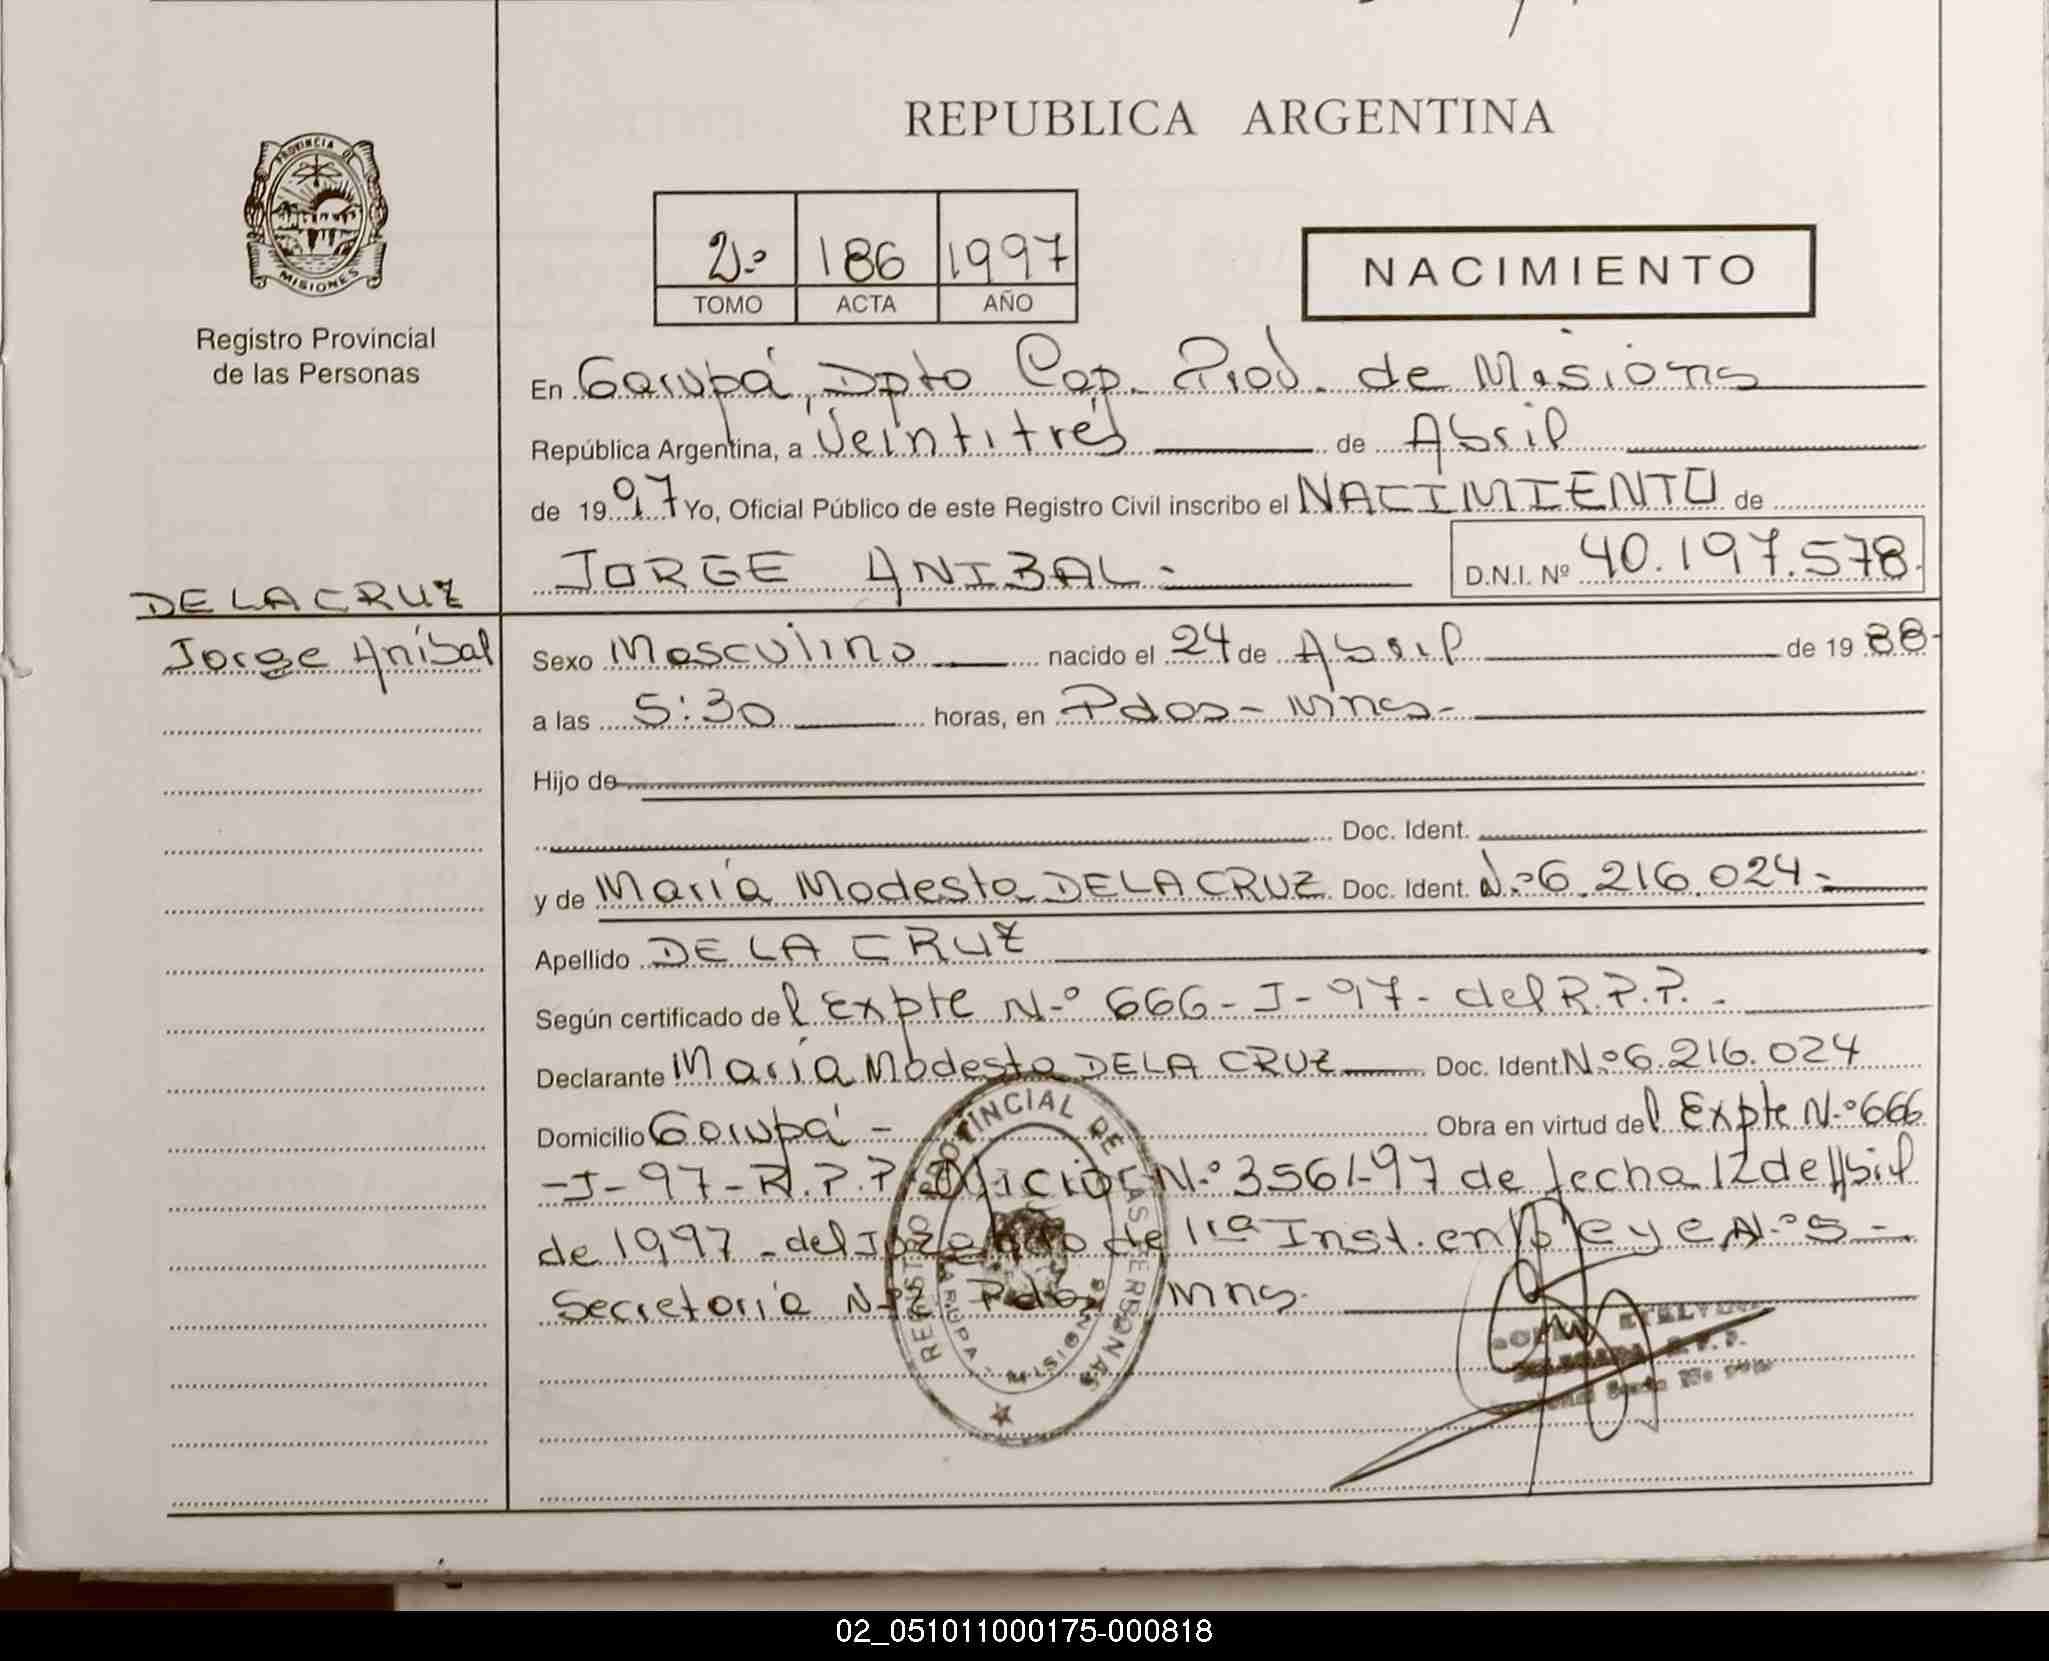 REPUBLICA ARGENTINA
PROVINCIA DE
MISIONES
Registro Provincial
de las Personas
2º 186 1997
TOMO ACTA AÑO
NACIMIENTO
En Garupá, Dpto Cap. Prov. de Misiones
República Argentina, a Veintitrés de Abril
de 1997 Yo, Oficial Público de este Registro Civil inscribo el NACIMIENTO de
JORGE ANIBAL.- D.N.I. Nº 40.197.578.
DE LA CRUZ
Jorge Aníbal
Sexo Masculino nacido el 24 de Abril de 1988-
a las 5:30 horas, en Pdas - Mnes -
Hijo de
Doc. Ident.
y de María Modesta DE LA CRUZ Doc. Ident. Nº 6.216.024.-
Apellido DE LA CRUZ
Según certificado del Expte Nº 666 - I - 97 - del R.P.P. -
Declarante María Modesta DE LA CRUZ Doc. Ident. Nº 6.216.024
Domicilio Garupá - Obra en virtud del Expte Nº 666
- I - 97 - R.P.P. Nº 356/97 de fecha 12 de Abril
de 1997 - del Juzgado de 1ra Inst. en Nº 5 -
Secretaría Nº 2 Pdas, Mns.
REGISTRO PROVINCIAL DE LAS PERSONAS
GARUPA - MISIONES
ETELVINA
DELEGADA R.P.P.
02_051011000175-000818